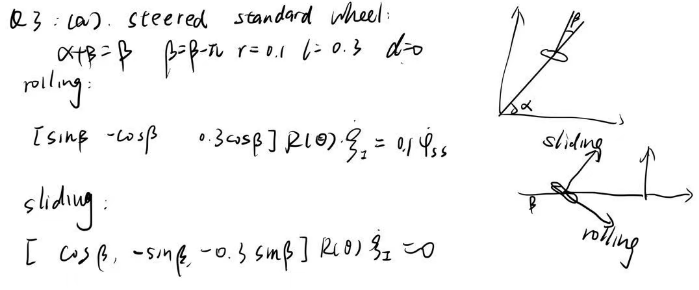 Q3: (a). steered standard wheel:
α+β=β β=β-π r=0.1 l=0.3 d=0
rolling:
[sinβ -cosβ 0.3cosβ] R(θ) ξ̇_I = 0.1 φ̇_ss
sliding:
[ cosβ, -sinβ, -0.3 sinβ ] R(θ) ξ̇_I = 0
β
α
sliding
β
rolling